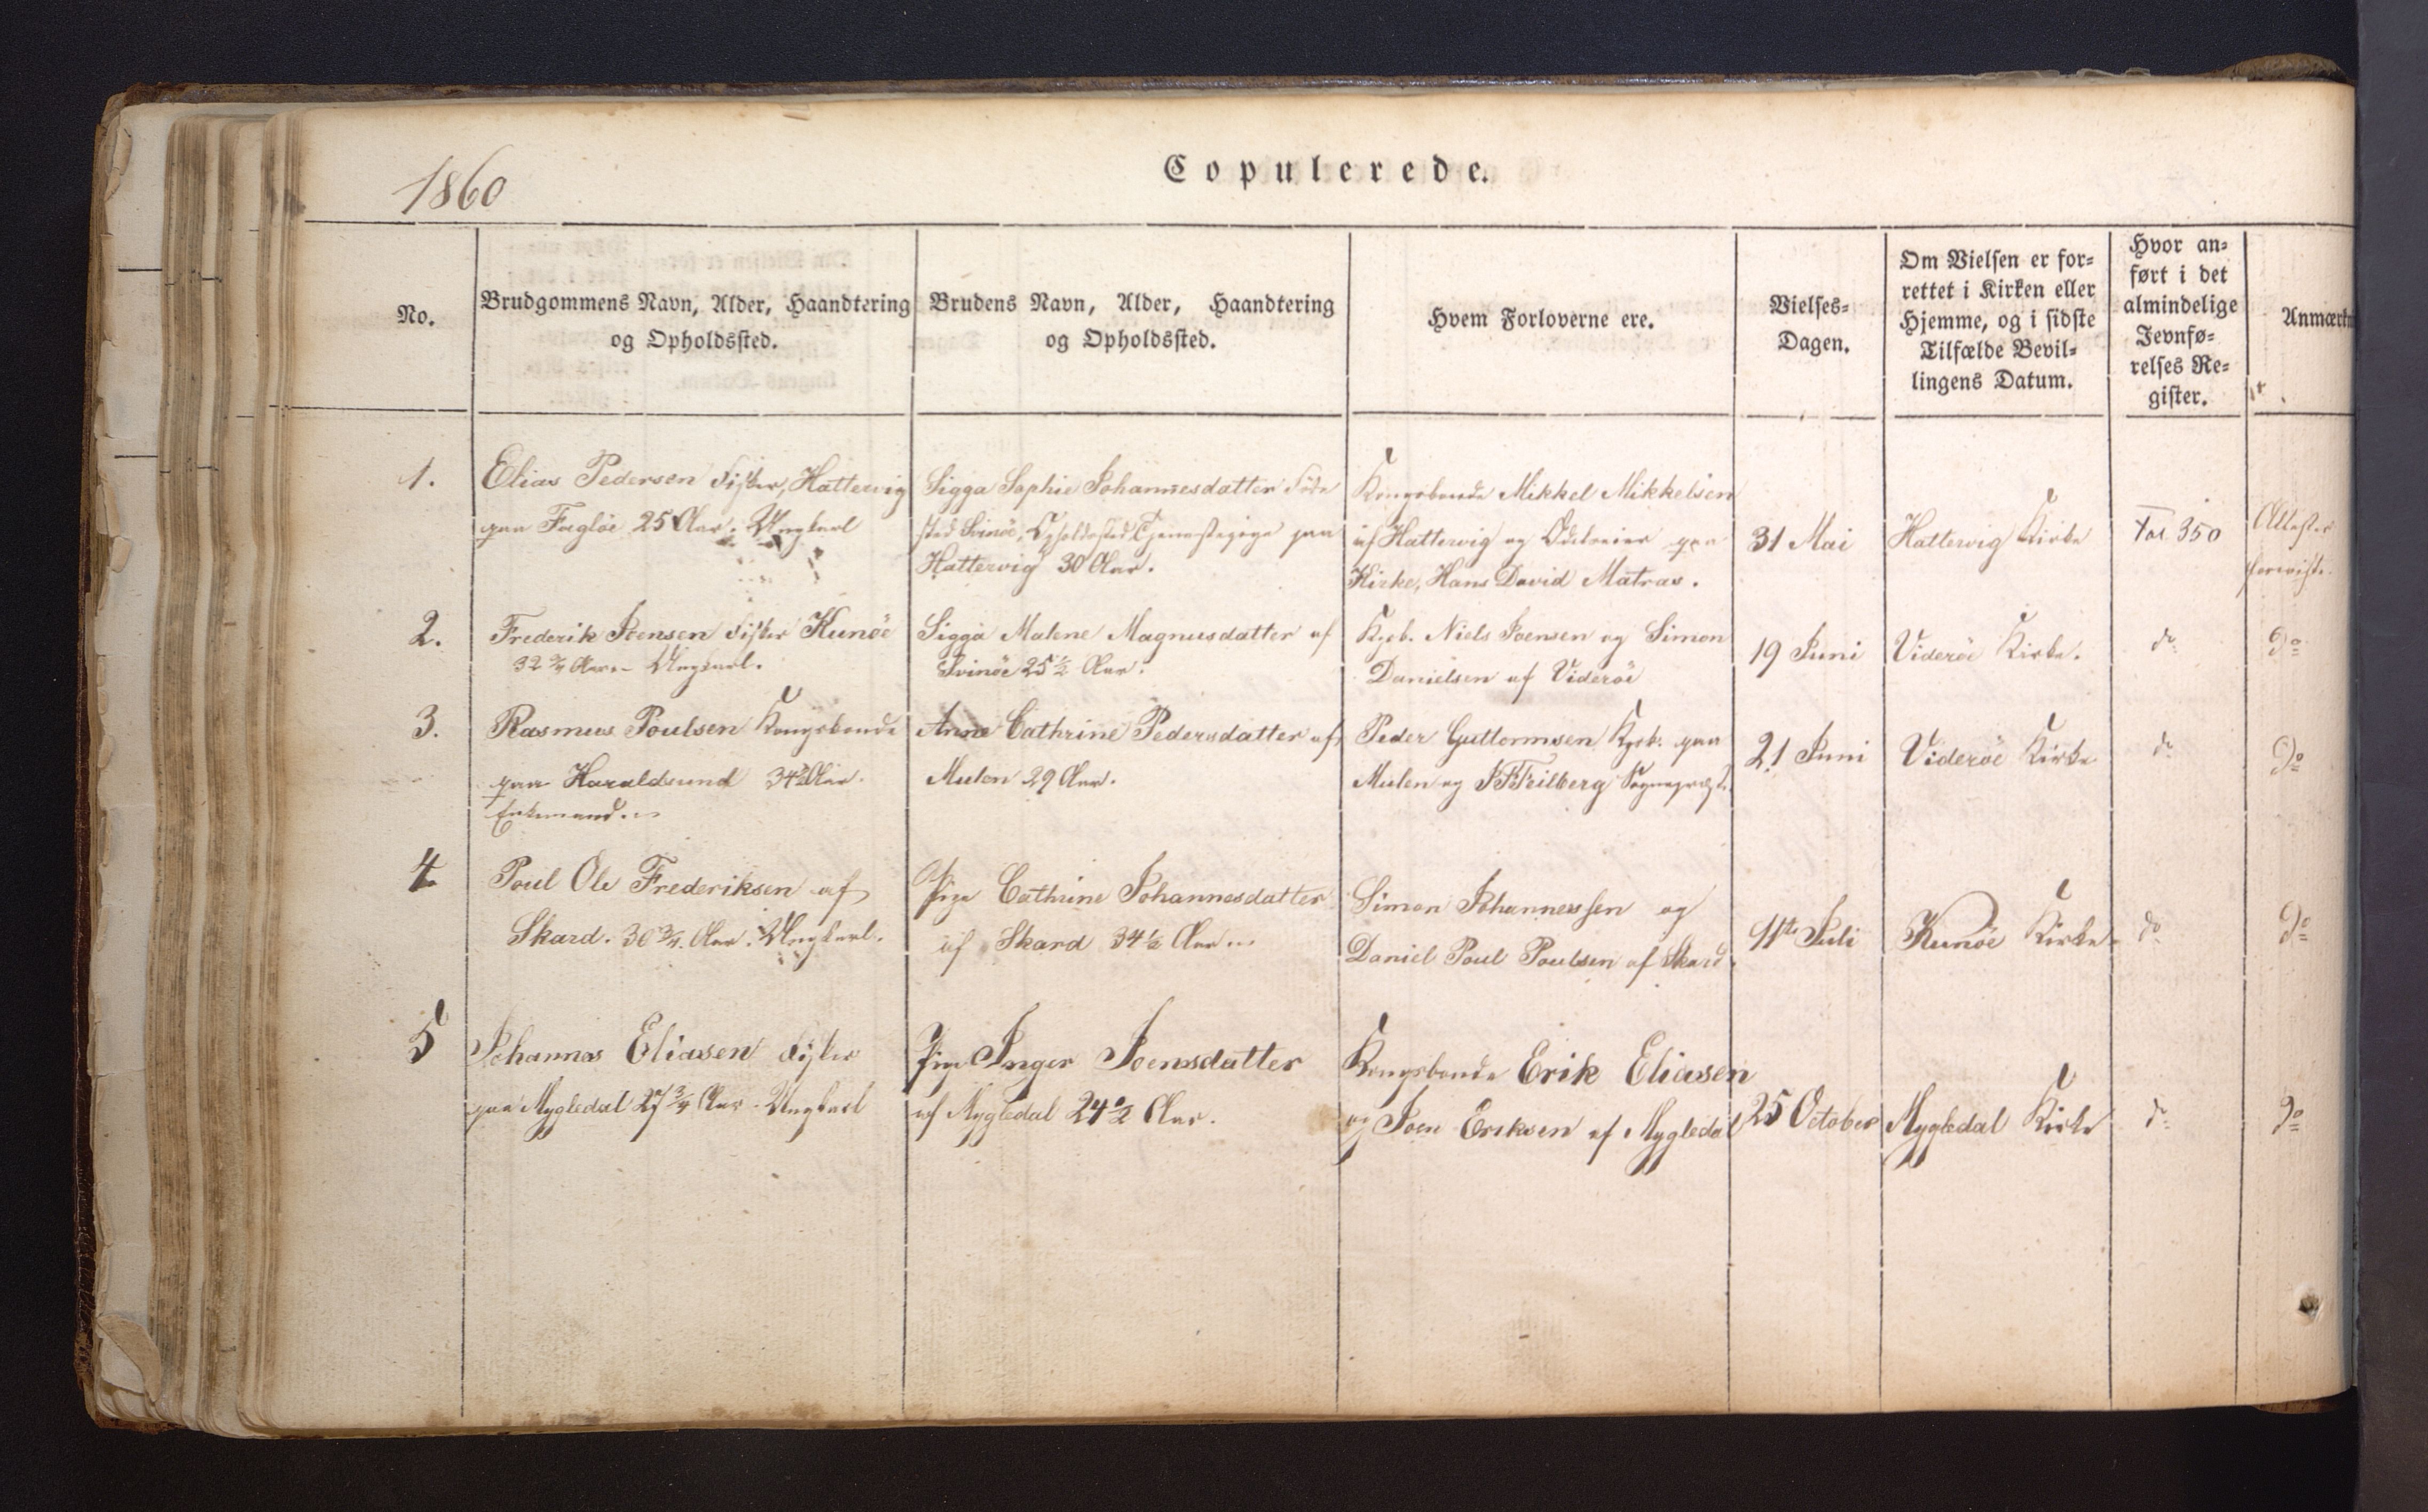 1860
Copulerede.
No.
Brudgommens Navn, Alder, Haandtering
og Opholdssted.
Brudens Navn, Alder, Haandtering
og Opholdssted.
Hvem Forloverne ere.
Vielses-
Dagen.
Om Vielsen er for-
rettet i Kirken eller
Hjemme, og i sidste
Tilfælde Bevil-
lingens Datum.
Hvor an-
ført i det
almindelige
Jevnfø-
relses Re-
gister.
Anmærkn
1.
Elias Pedersen Fisker, Hattervig
paa Fugløe 25 Aar. Ungkarl
Sigga Sophie Johannesdatter Føde
sted Svinöe, Opholdssted Tjenestepige paa
Hattervig 30 Aar.
Kongsbonde Mikkel Mikkelsen
af Hattervig og Odelseier paa
Kirke, Hans David Matras.
31 Mai
Hattervig Kirke
Fol 350
Attester
foreviste.
2.
Frederik Joensen Fisker Kunöe
32 3/4 Aar. Ungkarl.
Sigga Malene Magnusdatter af
Svinöe 25 1/2 Aar.
Kgsb. Niels Joensen og Simon
Danielsen af Videröe
19 Juni
Videröe Kirke.
do
Do
3.
Rasmus Poulsen Kongsbonde
paa Haraldsund Aar.
Enkemand.
Anne Cathrine Pedersdatter af
Mulen 29 Aar.
Peder Guttormsen Kgsb. paa
Mulen og Feilberg Sognepræst.
21 Juni
Videröe Kirke
do
Do
4
Poul Ole Frederiksen af
Skard. 30 3/4 Aar. Ungkarl.
Pige Cathrine Johannesdatter
af Skard 34 1/2 Aar
Simon Johannessen og
Daniel Poul Poulsen af Skard.
11te Juli
Kunöe Kirke
do
Do
5
Johannes Eliasen Fisker
paa Mygledal 27 3/4 Aar. Ungkarl
Pige Inger Joensdatter
af Mygledal 24 1/2 Aar.
Kongsbonde Erik Eliasen
og Joen Eriksen af Mygledal
25 October
Mygledal Kirke
do
Do